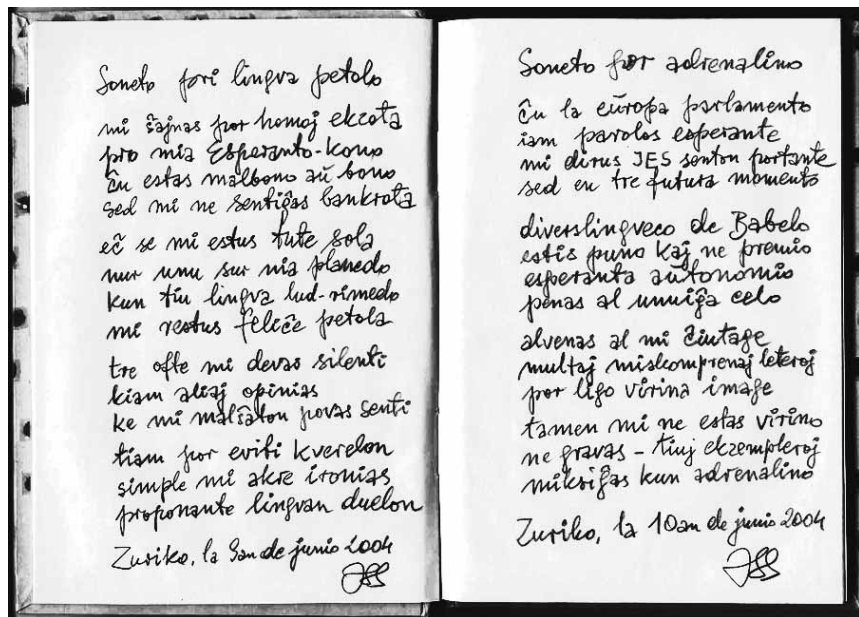 Soneto pri lingva petolo
mi ŝajnas por homoj ekzota
pro mia Esperanto-kono
ĉu estas malbono aŭ bono
sed mi ne sentiĝas bankrota
eĉ se mi estus tute sola
nur unu sur nia planedo
kun tiu lingva lud-rimedo
mi restus feliĉe petola
tre ofte mi devas silenti
kiam aliaj opinias
ke mi malŝaton povas senti
tiam por eviti kverelon
simple mi akre ironias
proponante lingvan duelon
Zuriko, la 9an de junio 2004
Soneto por adrenalino
ĉu la eŭropa parlamento
iam parolos esperante
mi dirus JES senton portante
sed en tre futura momento
diverslingveco de Babelo
estis puno kaj ne premio
esperanta aŭtonomio
penas al unuiĝa celo
alvenas al mi ĉiutage
multaj miskomprenaj leteroj
por ligo virina image
tamen mi ne estas virino
ne gravas – tiuj ekzempleroj
mikriĝas kun adrenalino
Zuriko, la 10an de junio 2004